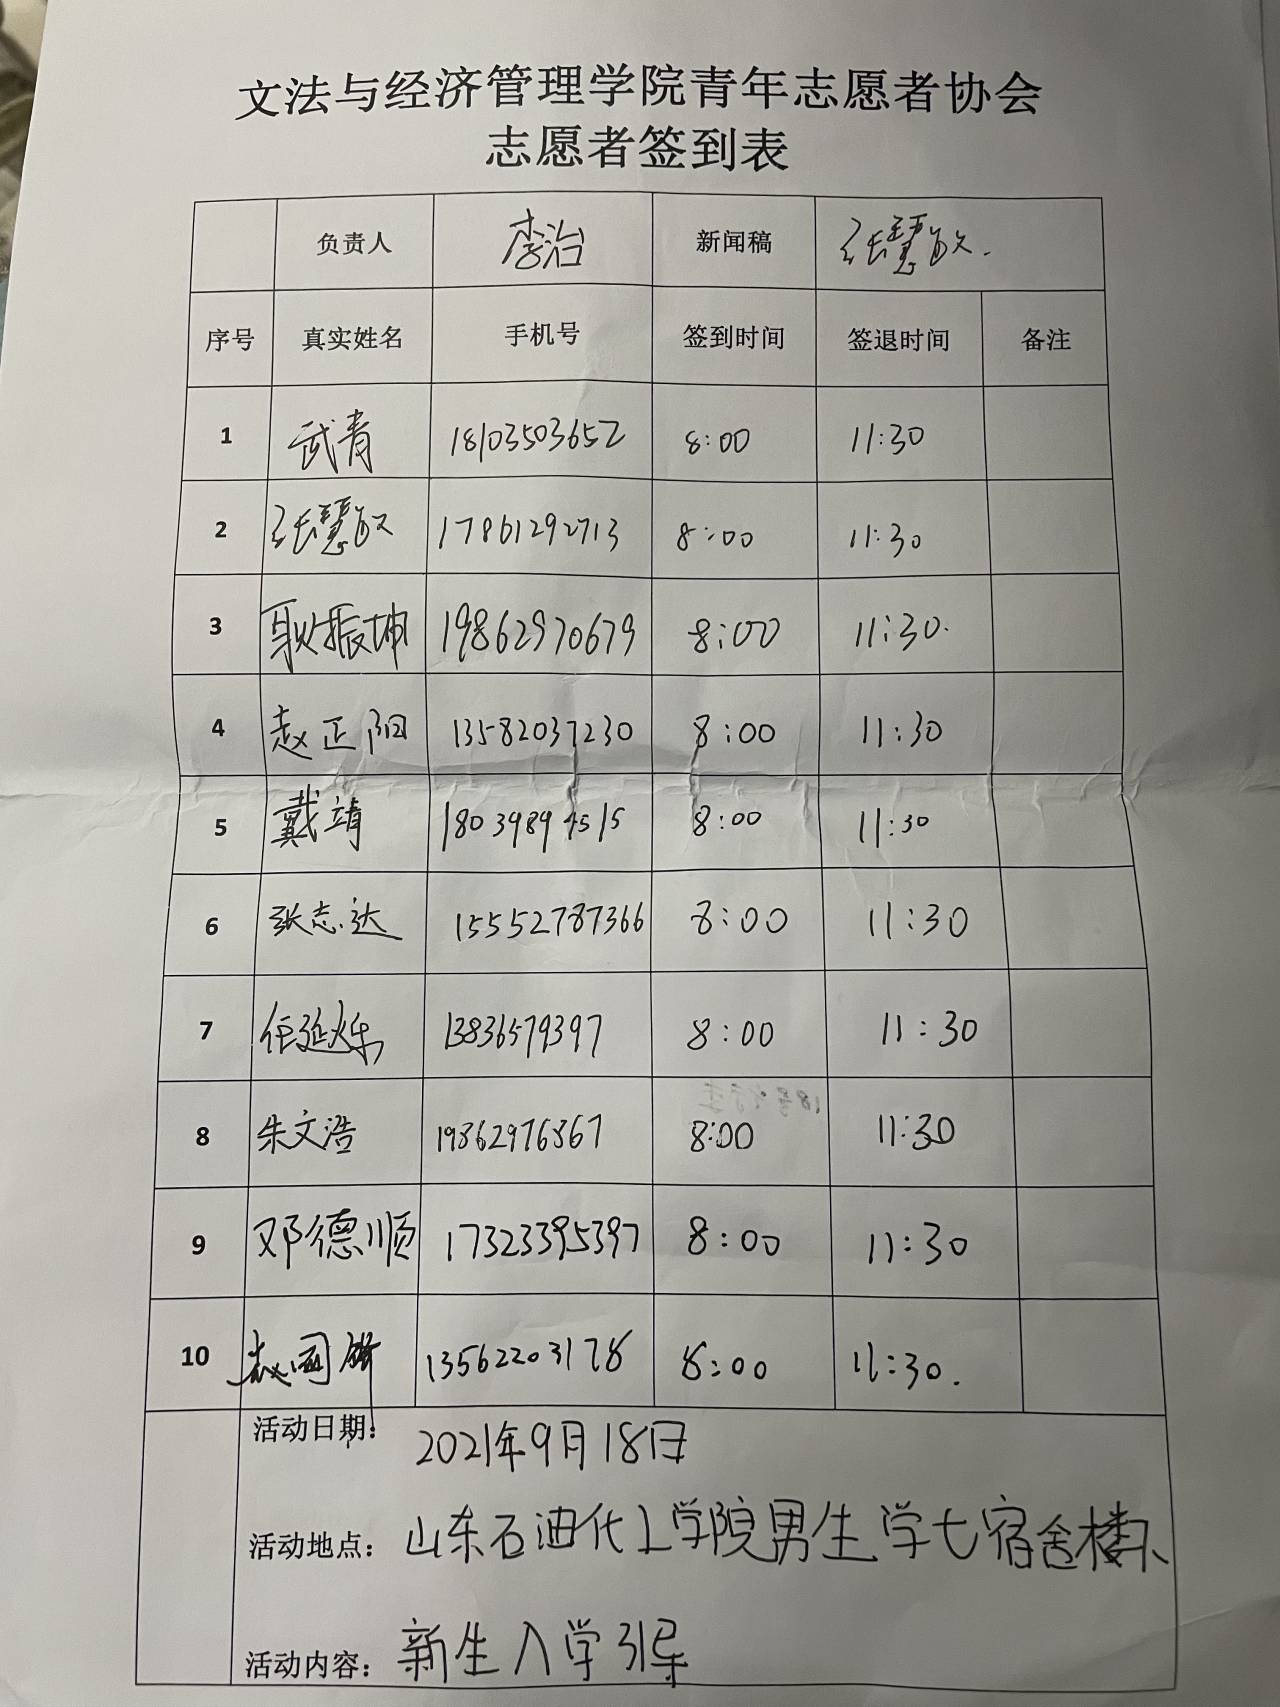 文法与经济管理学院青年志愿者协会
志愿者签到表
负责人 李治 新闻稿 张慧敏.
序号 真实姓名 手机号 签到时间 签退时间 备注
1 武青 18103503652 8:00 11:30
2 张慧敏 17861292713 8:00 11:30
3 耿振坤 19862970679 8:00 11:30.
4 赵正阳 13582037230 8:00 11:30
5 戴靖 18039894515 8:00 11:30
6 张志达 15552787366 8:00 11:30
7 任延烁 13836579397 8:00 11:30
8 朱文浩 19862976367 8:00 11:30
9 邓德顺 17323395397 8:00 11:30
10 赵国锋 13562203178 8:00 11:30.
活动日期: 2021年9月18日
活动地点: 山东石油化工学院男生学七宿舍楼下
活动内容: 新生入学引导